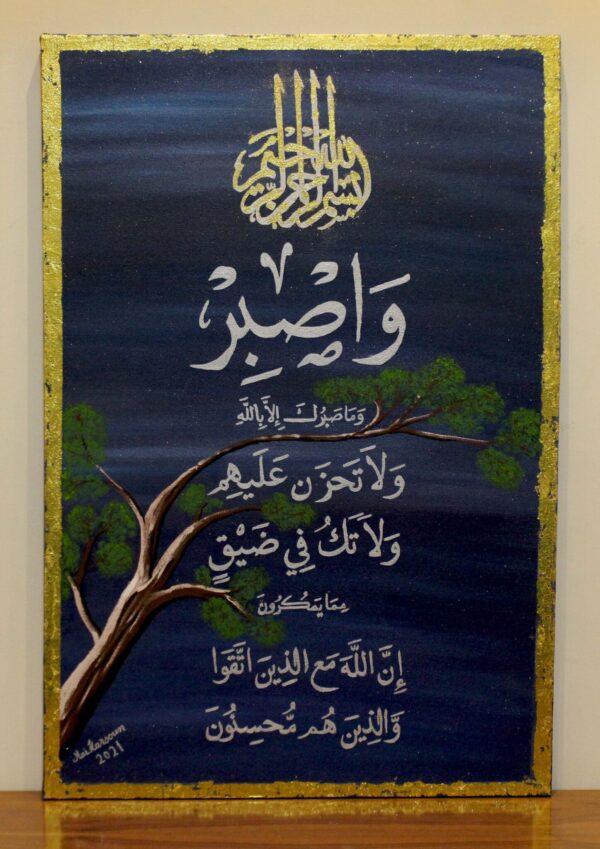 بسم الله الرحمن الرحيم
وَاصْبِرْ
وَمَا صَبْرُكَ إِلاَّ بِاللَّهِ
وَلاَ تَحْزَن عَلَيْهِم
وَلاَ تَكُ فِي ضَيْقٍ
مِمَّا يَمْكُرُونَ
إِنَّ اللَّهَ مَعَ الَّذِينَ اتَّقَوا
وَّالَّذِينَ هُم مُّحْسِنُونَ
2021